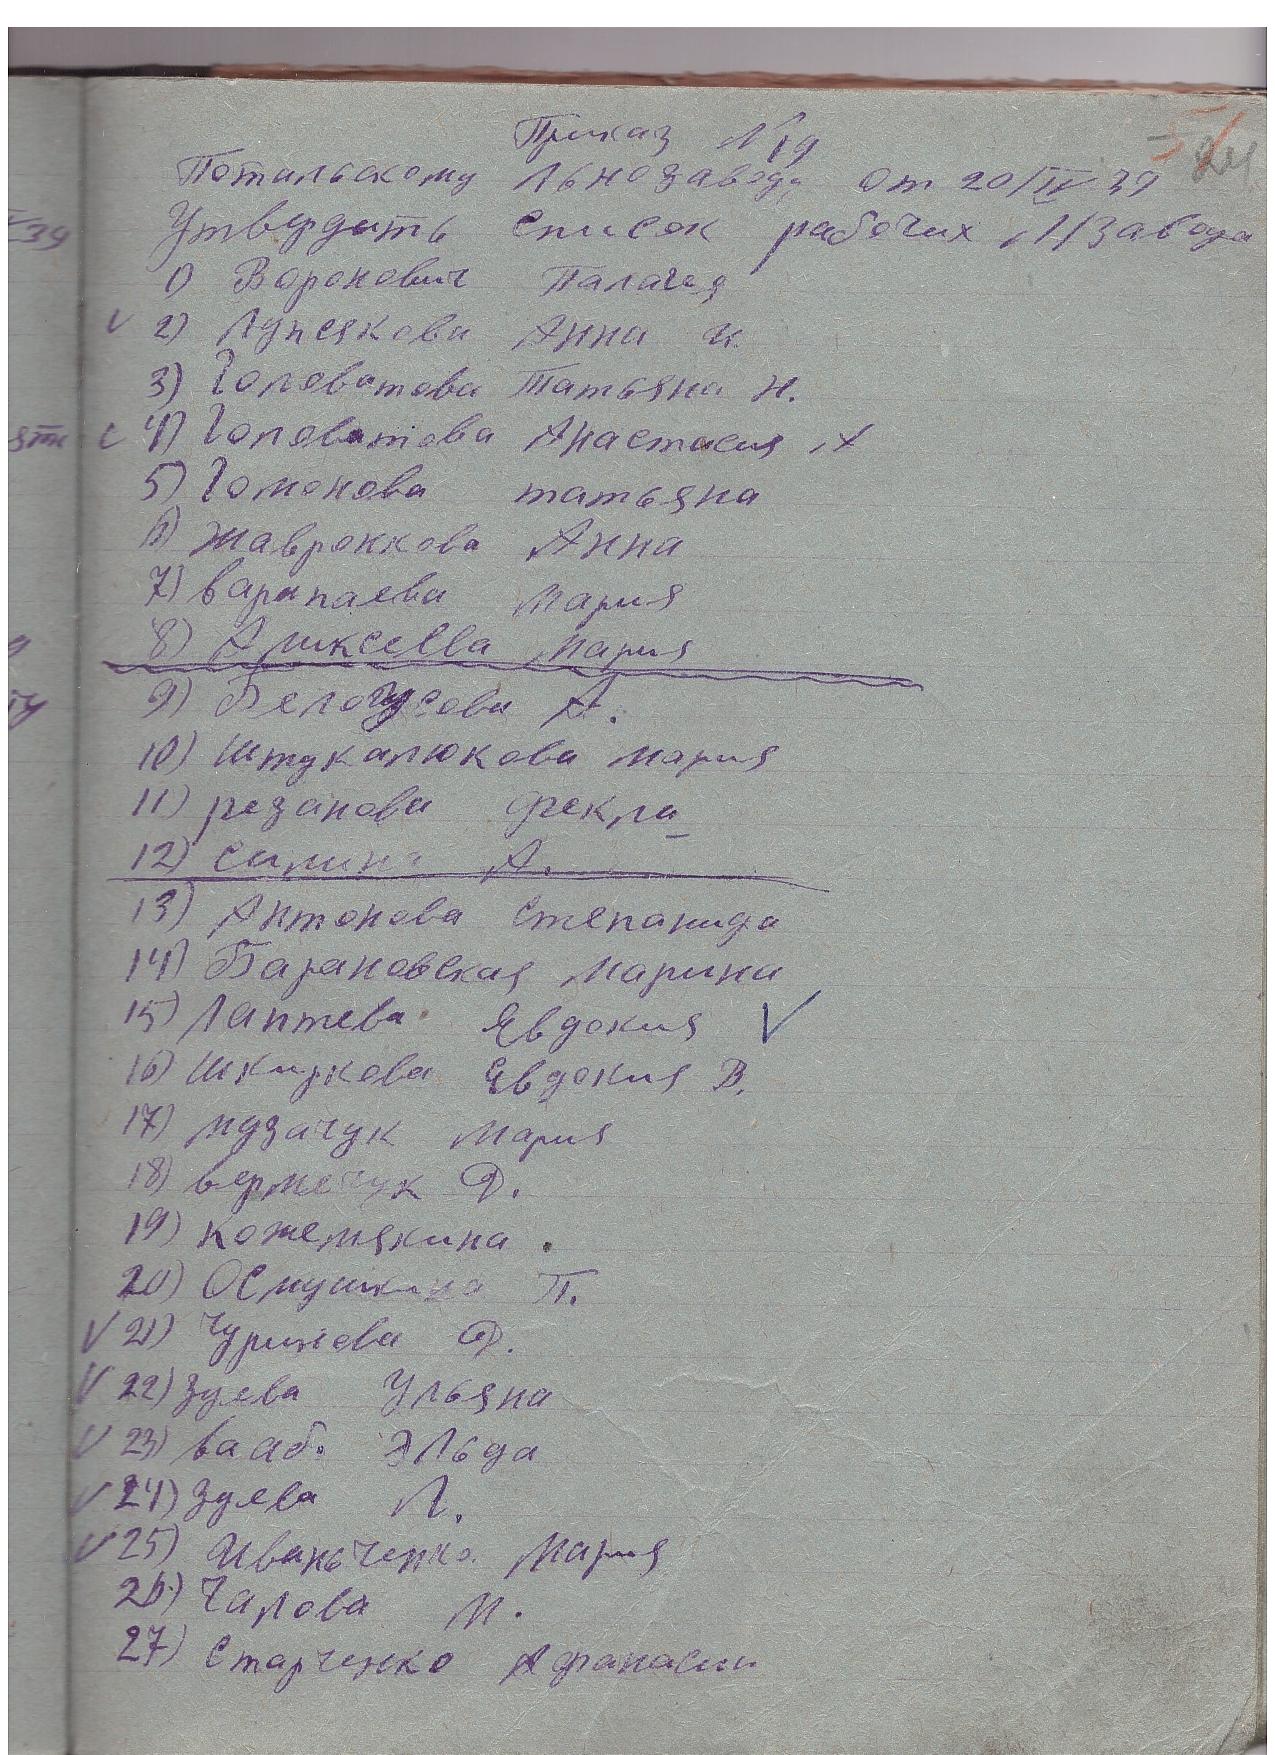 Приказ №19
По тильскому Льнозаводу от 20/IV 39
Утвердить список рабочих Л/завода
1) Воронович Палагея
2) Лупсякова Анна И.
3) Головатова Татьяна Н.
4) Головатова Анастасия Х
5) Гомонова татьяна
6) Жавронкова Анна
7) варапаева Мария
8) Аликсеева Мария
9) Белоусова А.
10) Штукалюкова Мария
11) резанова Фекла
12) Силина А.
13) Антонова Степанида
14) Барановская Марина
15) Лаптева Явдокия V
16) Шкуркова Явдокия В.
17) музачук Мария
18) вермечук Ф.
19) кожемякина
20) Осмушкина П.
V 21) Чуринова Ф.
V 22) Зуева Ульяна
V 23) вааб. Эльда
V 24) Зуева Л.
V 25) Иваньченко Мария
26) Чалова М.
27) Старченко Афанасии